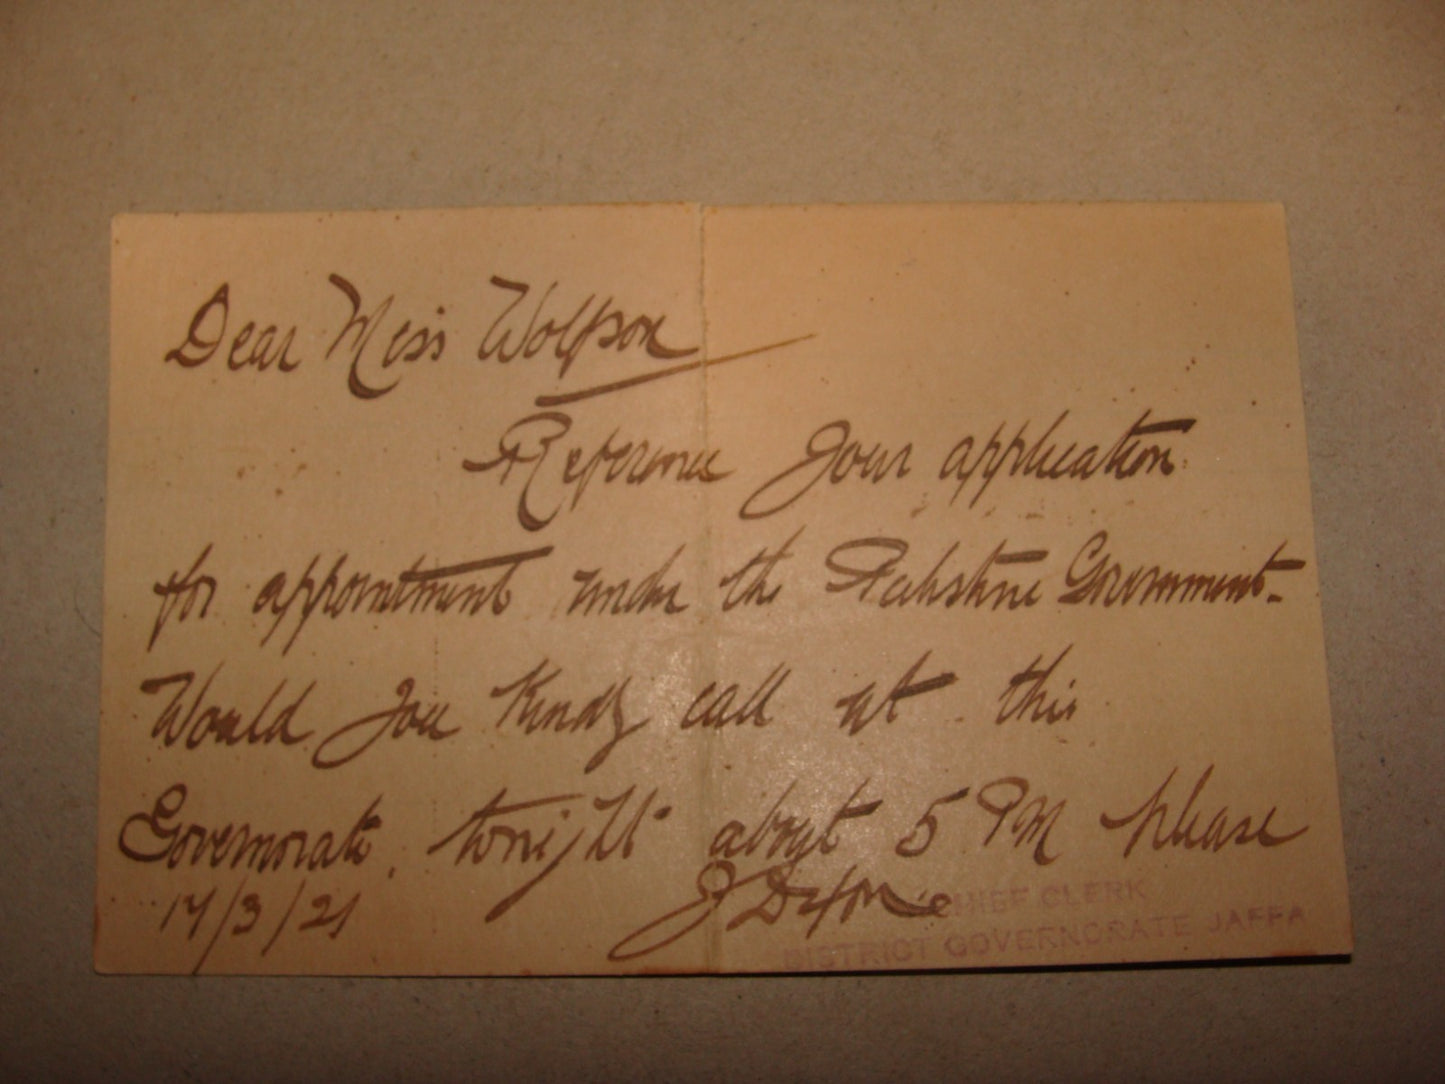 Dear Miss Wolfson
Reference your application
for appointment under the Palestine Government.
Would you kindly call at this
Governorate, tonight about 5 PM please
14/3/21 J Dixon
CHIEF CLERK
DISTRICT GOVERNORATE JAFFA